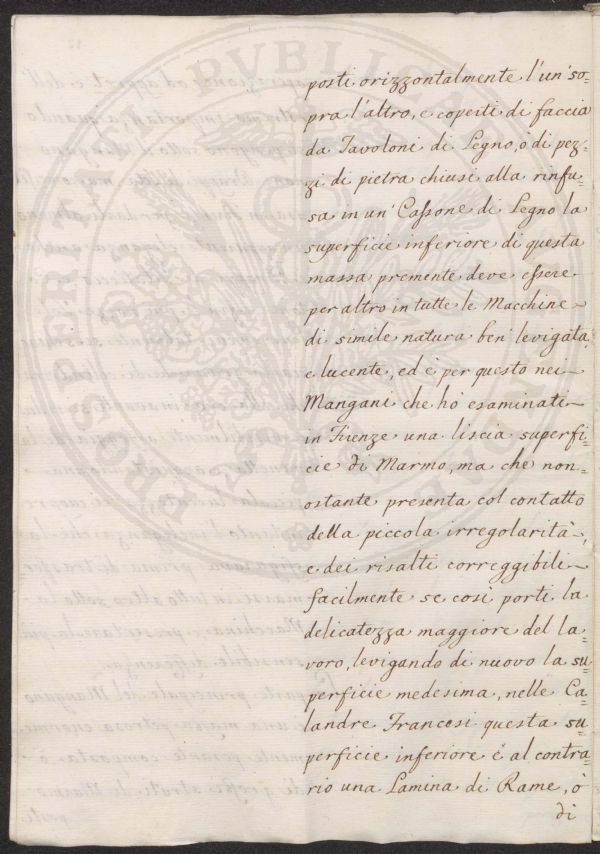 posti orizzontalmente l'un' so=
pra l'altro, e coperti di faccia
da Tavoloni di Legno, ò di pez=
zi di pietra chiusi alla rinfu=
sa in un' Cassone di Legno la
superficie inferiore di questa
massa premente deve essere
per altro in tutte le Macchine
di simile natura ben' levigata,
e lucente, ed è per questo nei
Mangani che hò esaminati
in Firenze una liscia superfi=
cie di Marmo, ma che non=
ostante presenta col contatto
della piccola irregolarità,
e dei risalti correggibili
facilmente se così porti la
delicatezza maggiore del la=
voro, levigando di nuovo la su=
perficie medesima, nelle Ca=
landre Francesi questa su=
perficie inferiore è al contra=
rio una Lamina di Rame, ò
di